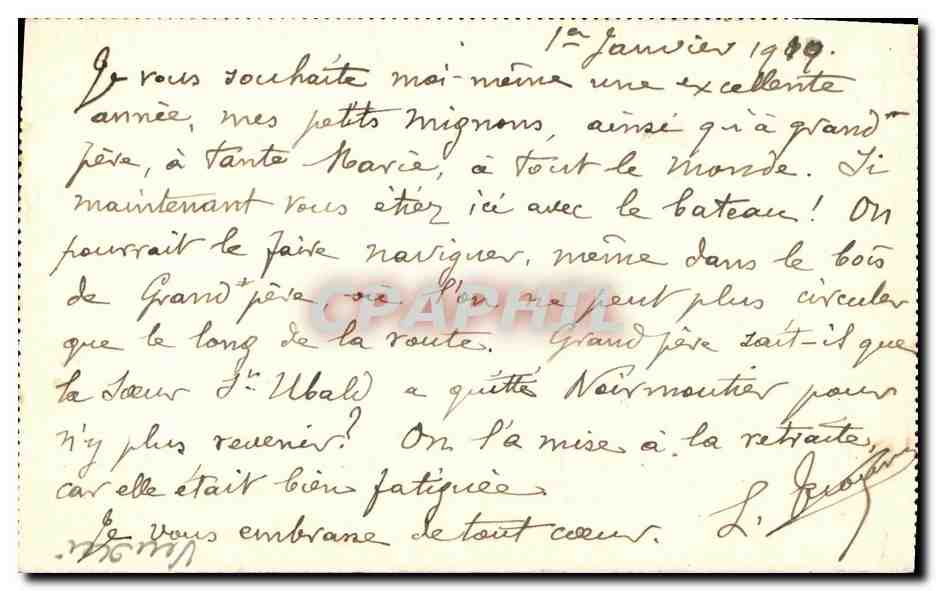 1er Janvier 1919.
Je vous souhaite moi-même une excellente
année, mes petits mignons, ainsi qu'à grand
père, à tante Marie, à tout le monde. Si
maintenant vous étiez ici avec le bateau ! On
pourrait le faire naviguer, même dans le bois
de Grand père, où l'on ne peut plus circuler
que le long de la route. Grand père sait-il que
la Sœur St Ubald a quitté Noirmoutier pour
n'y plus revenir ? On l'a mise à la retraite,
car elle était bien fatiguée
Je vous embrasse de tout cœur. L.
CPAPHIL